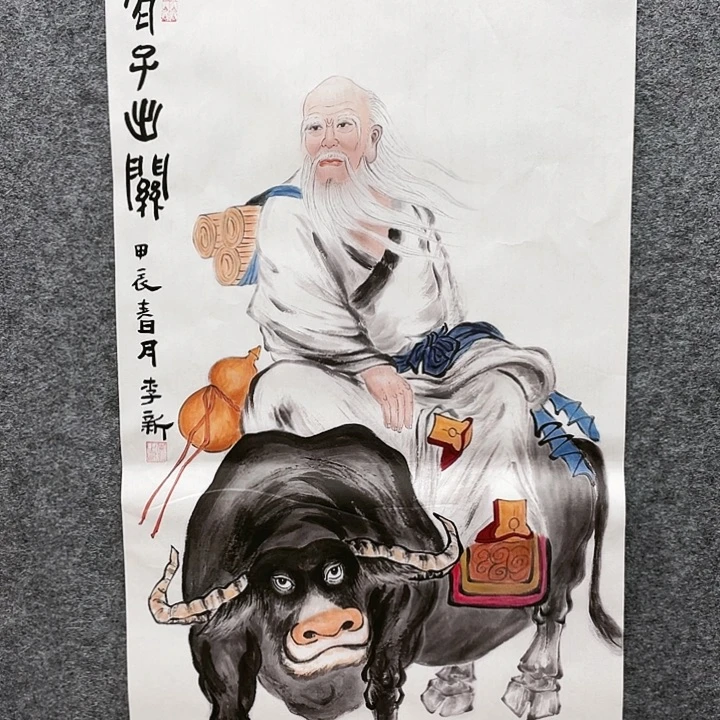 子出關
甲辰春月李新